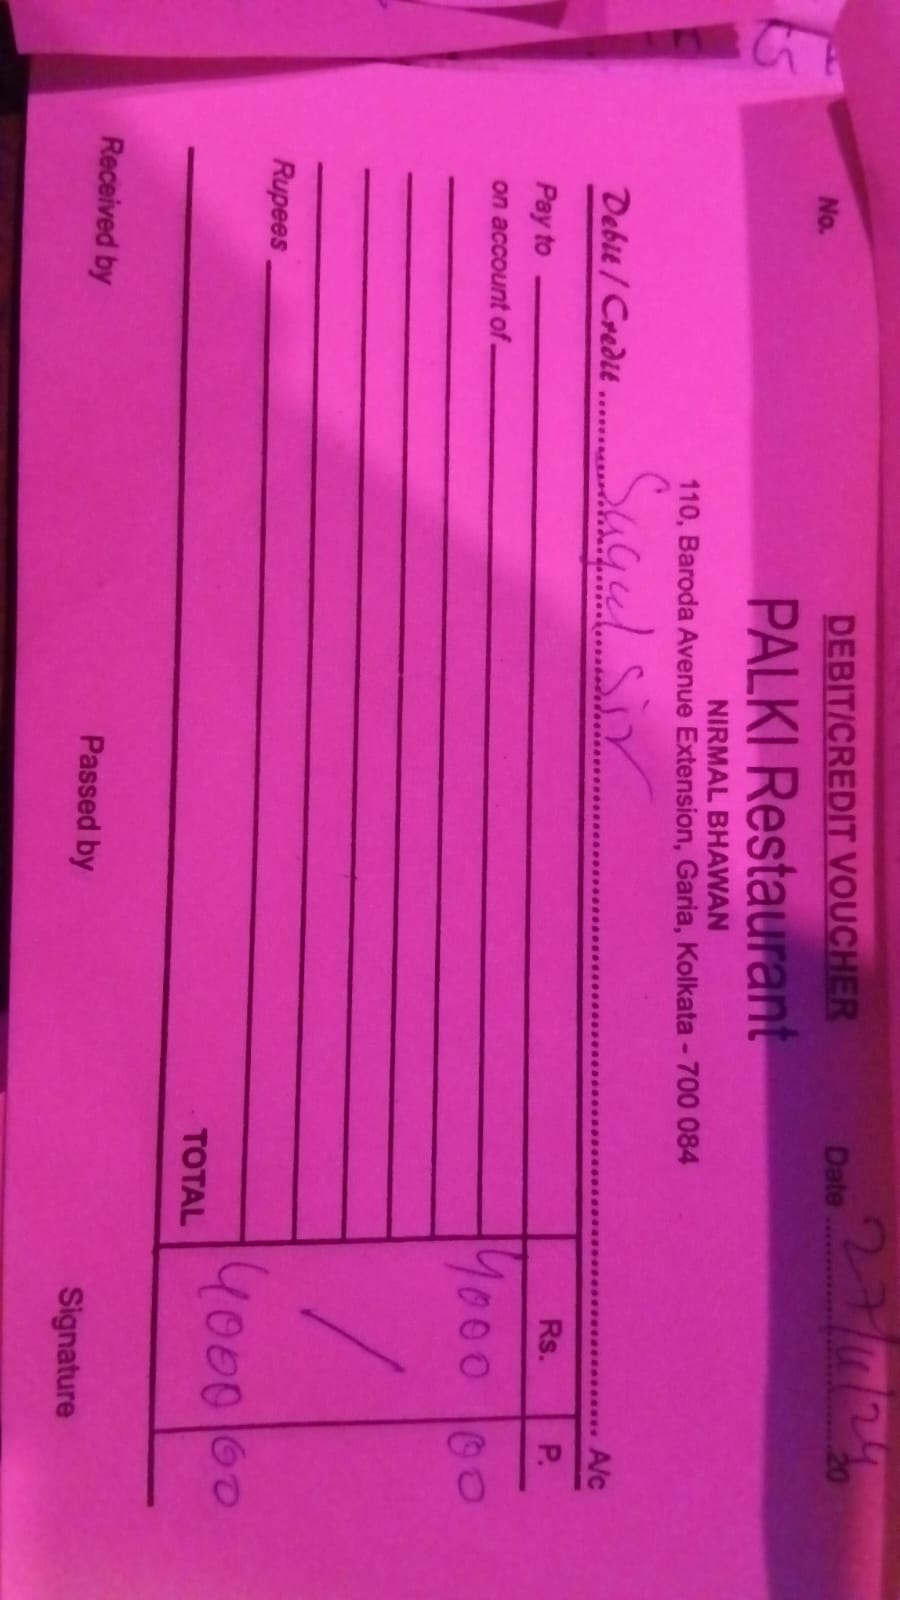 DEBIT/CREDIT VOUCHER
No.
Date ........ 27/11/24 20
PALKI Restaurant
NIRMAL BHAWAN
110, Baroda Avenue Extension, Garia, Kolkata - 700 084
Debit / Credit ........ Sir ........ A/c
Pay to Rs. P.
on account of 4000 00
Rupees
TOTAL 4000 00
Received by Passed by Signature